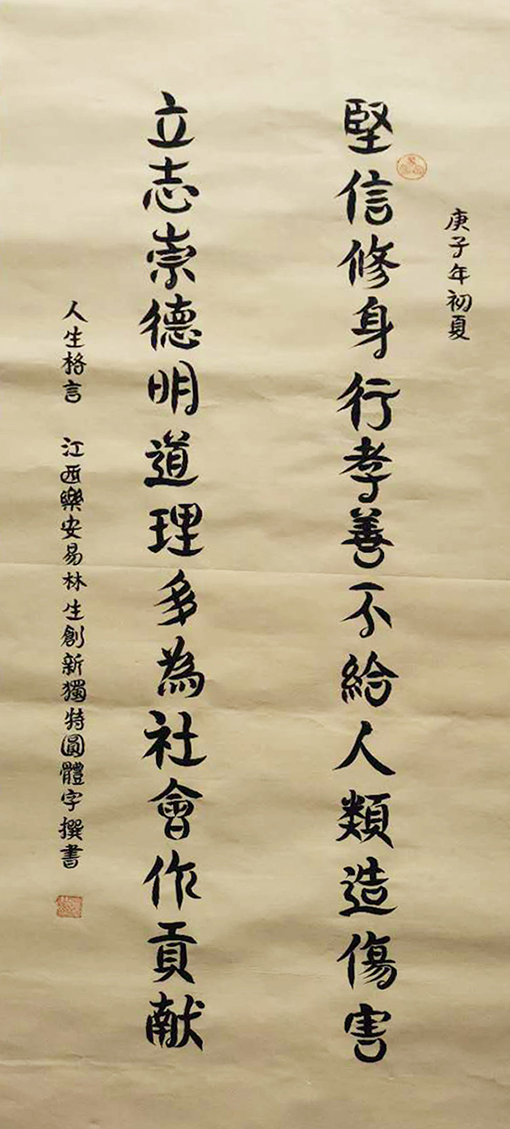 庚子年初夏
堅信修身行孝善不給人類造傷害
立志崇德明道理多為社會作貢献
人生格言 江西樂安易林生創新獨特圓體字撰書